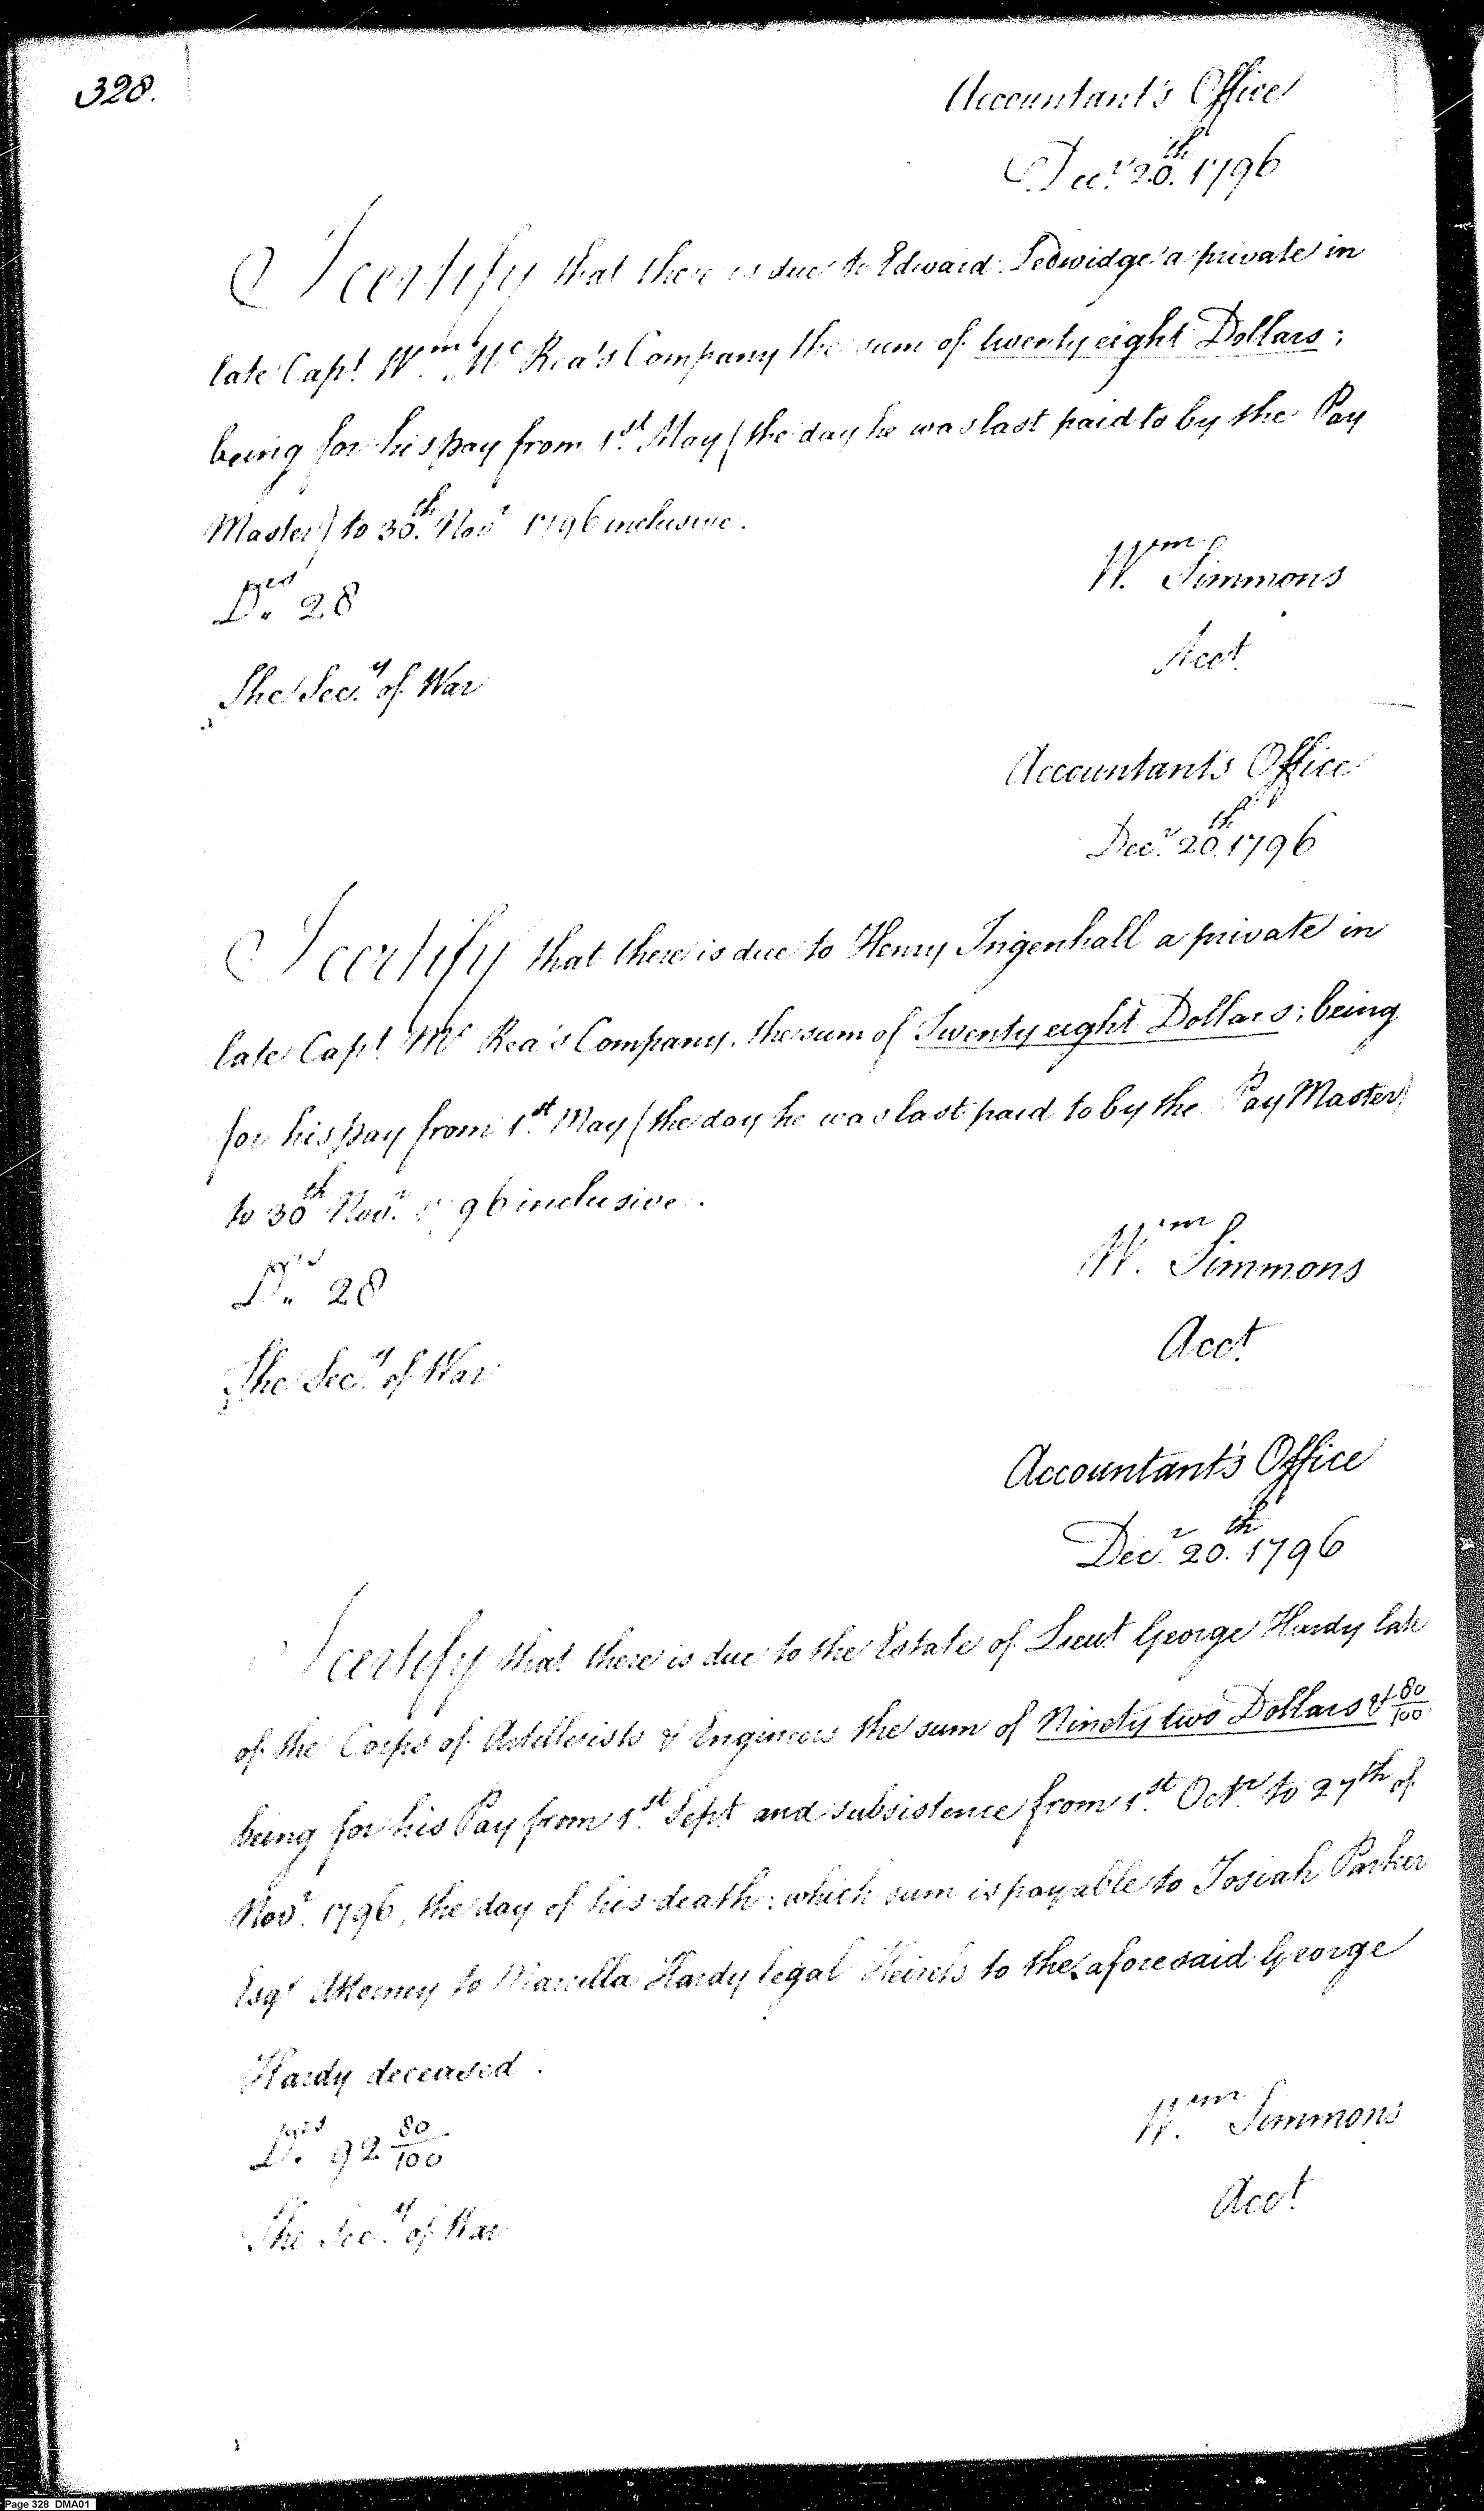 328.
Accountant's Office
Decr 20th. 1796
I certify that there is due to Edward Ledwidge a private in
late Capt. Wm. McRea's Company the sum of twenty eight Dollars;
being for his pay from 1st. May (the day he was last paid to by the Pay
Master) to 30th. Novr 1796 inclusive.
Drs 28
Wm. Simmons
Acct.
The Secy. of War
Accountant's Office
Decr. 20th. 1796
I certify that there is due to Henry Ingenhall a private in
late Capt. McRea's Company, the sum of Twenty eight Dollars; being
for his pay from 1st. May (the day he was last paid to by the Pay Master)
to 30th Novr. 1796 inclusive.
Drs 28
Wm. Simmons
Acct.
The Secy. of War
Accountant's Office
Decr. 20th. 1796
I certify that there is due to the Estate of Lieut George Hardy late
of the Corps of Artillerists & Engineers the sum of Ninety two Dollars & 80/100
being for his Pay from 1st. Sept and subsistence from 1st. Octr. to 27th of
Novr. 1796, the day of his death: which sum is payable to Josiah Parker
Esqr Attorney to Marcilla Hardy legal to the aforesaid George
Hardy deceased.
Drs 92 80/100
Wm. Simmons
Acct.
The Secy. of War
Page 328 DMA01